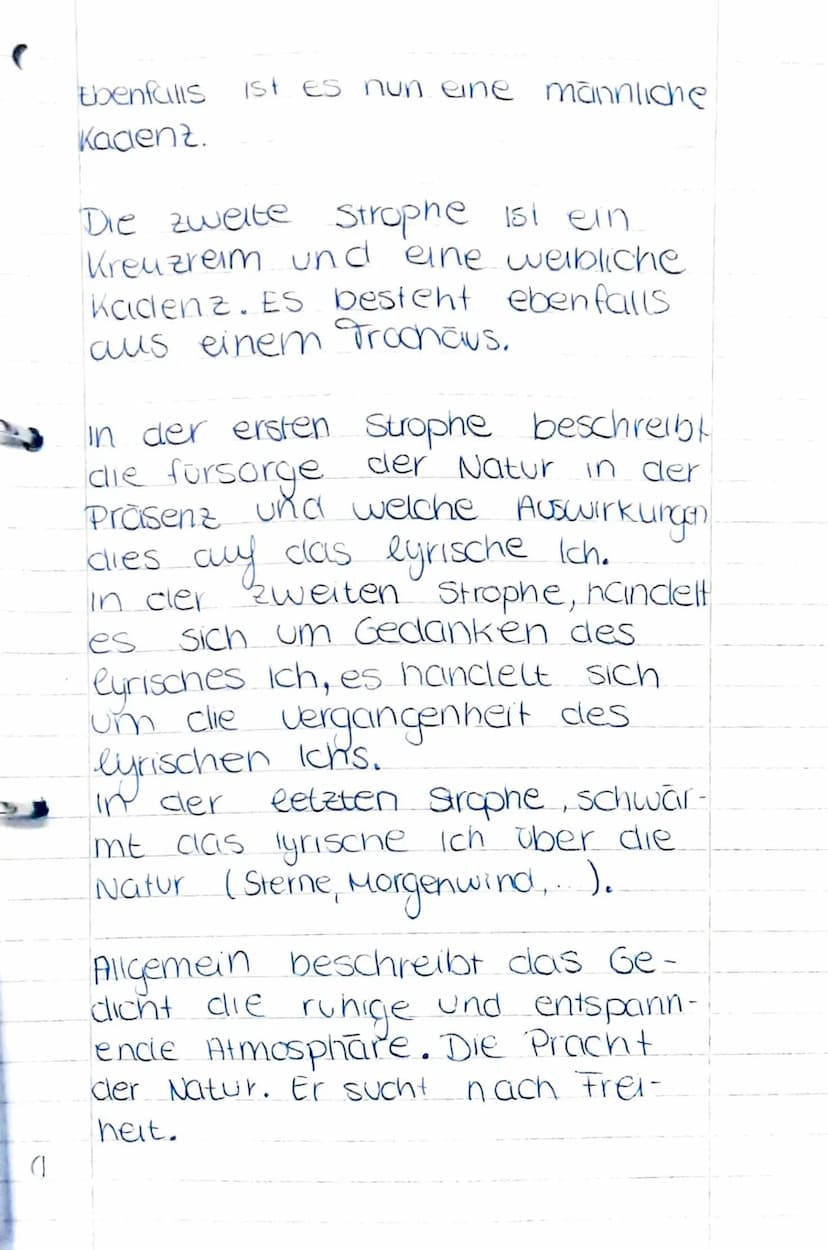 Ebenfalls ist es nun eine männliche
Kadenz.
Die zweite Strophe ist ein
Kreuzreim und eine weibliche
Kadenz. Es besteht ebenfalls
aus einem Trochäus.
In der ersten Strophe beschreibt
die fürsorge der Natur in der
Präsenz und welche Auswirkungen
dies auf das lyrische Ich.
In der zweiten Strophe, handelt
es sich um Gedanken des
lyrisches Ich, es handelt sich
um die vergangenheit des
lyrischen Ich's.
In der letzten Strophe, schwär-
mt das lyrische Ich über die
Natur (Sterne, Morgenwind, ...).
Allgemein beschreibt das Ge-
dicht die ruhige und entspann-
ende Atmosphäre. Die Pracht
der Natur. Er sucht nach Frei-
heit.